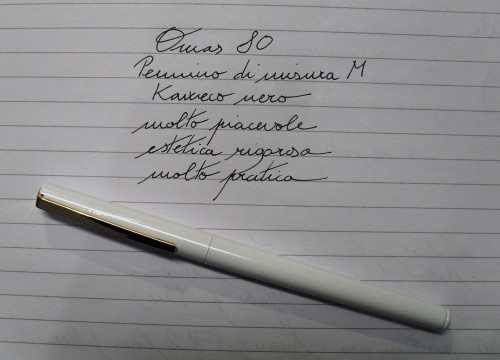 Omas 80
Pennino di misura M
Kaweco nero
molto piacevole
estetica rigorosa
molto pratica